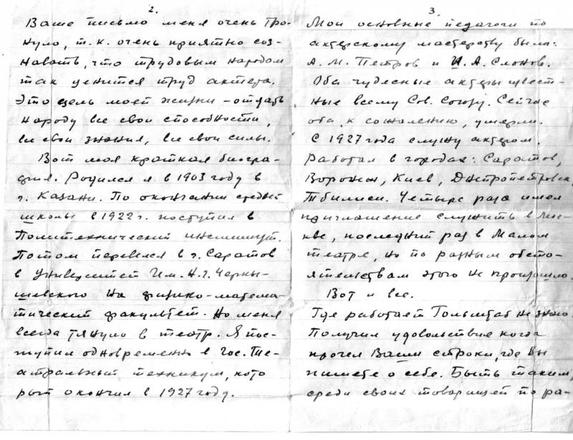 2.
Ваше письмо меня очень тро-
нуло, т.к. очень приятно соз-
навать, что трудовым народом
так ценится труд актера.
Это цель моей жизни – отдать
народу все свои способности,
все свои знания, все свои силы.
Вот моя краткая биогра-
фия. Родился я в 1903 году в
г. Казани. По окончании средней
школы в 1922 г. поступил в
Политехнический институт.
Потом перевелся в г. Саратов
в Университет им. Н.Г. Черны-
шевского на физико-матема-
тический факультет. Но меня
всегда тянуло в театр. Я пос-
тупил одновременно в Гос. Те-
атральный техникум, кото
рый окончил в 1927 году.
3.
Мои основные педагоги по
актерскому мастерству были:
А. М. Петров и И. А. Слонов.
Оба чудесные актеры извест-
ные всему Сов. Союзу. Сейчас
оба, к сожалению, умерли.
С 1927 года служу актером.
Работал в городах: Саратов,
Воронеж, Киев, Днепропетровск,
Тбилиси. Четыре раза имел
приглашение служить в Мос-
кве, последний раз в Малом
театре, но по разным обсто-
ятельствам этого не произошло.
Вот и все.
Где работает не знаю.
Получил удовольствие когда
прочел Ваши строки, где Вы
пишете о себе. Быть таким,
среди своих товарищей по ра-